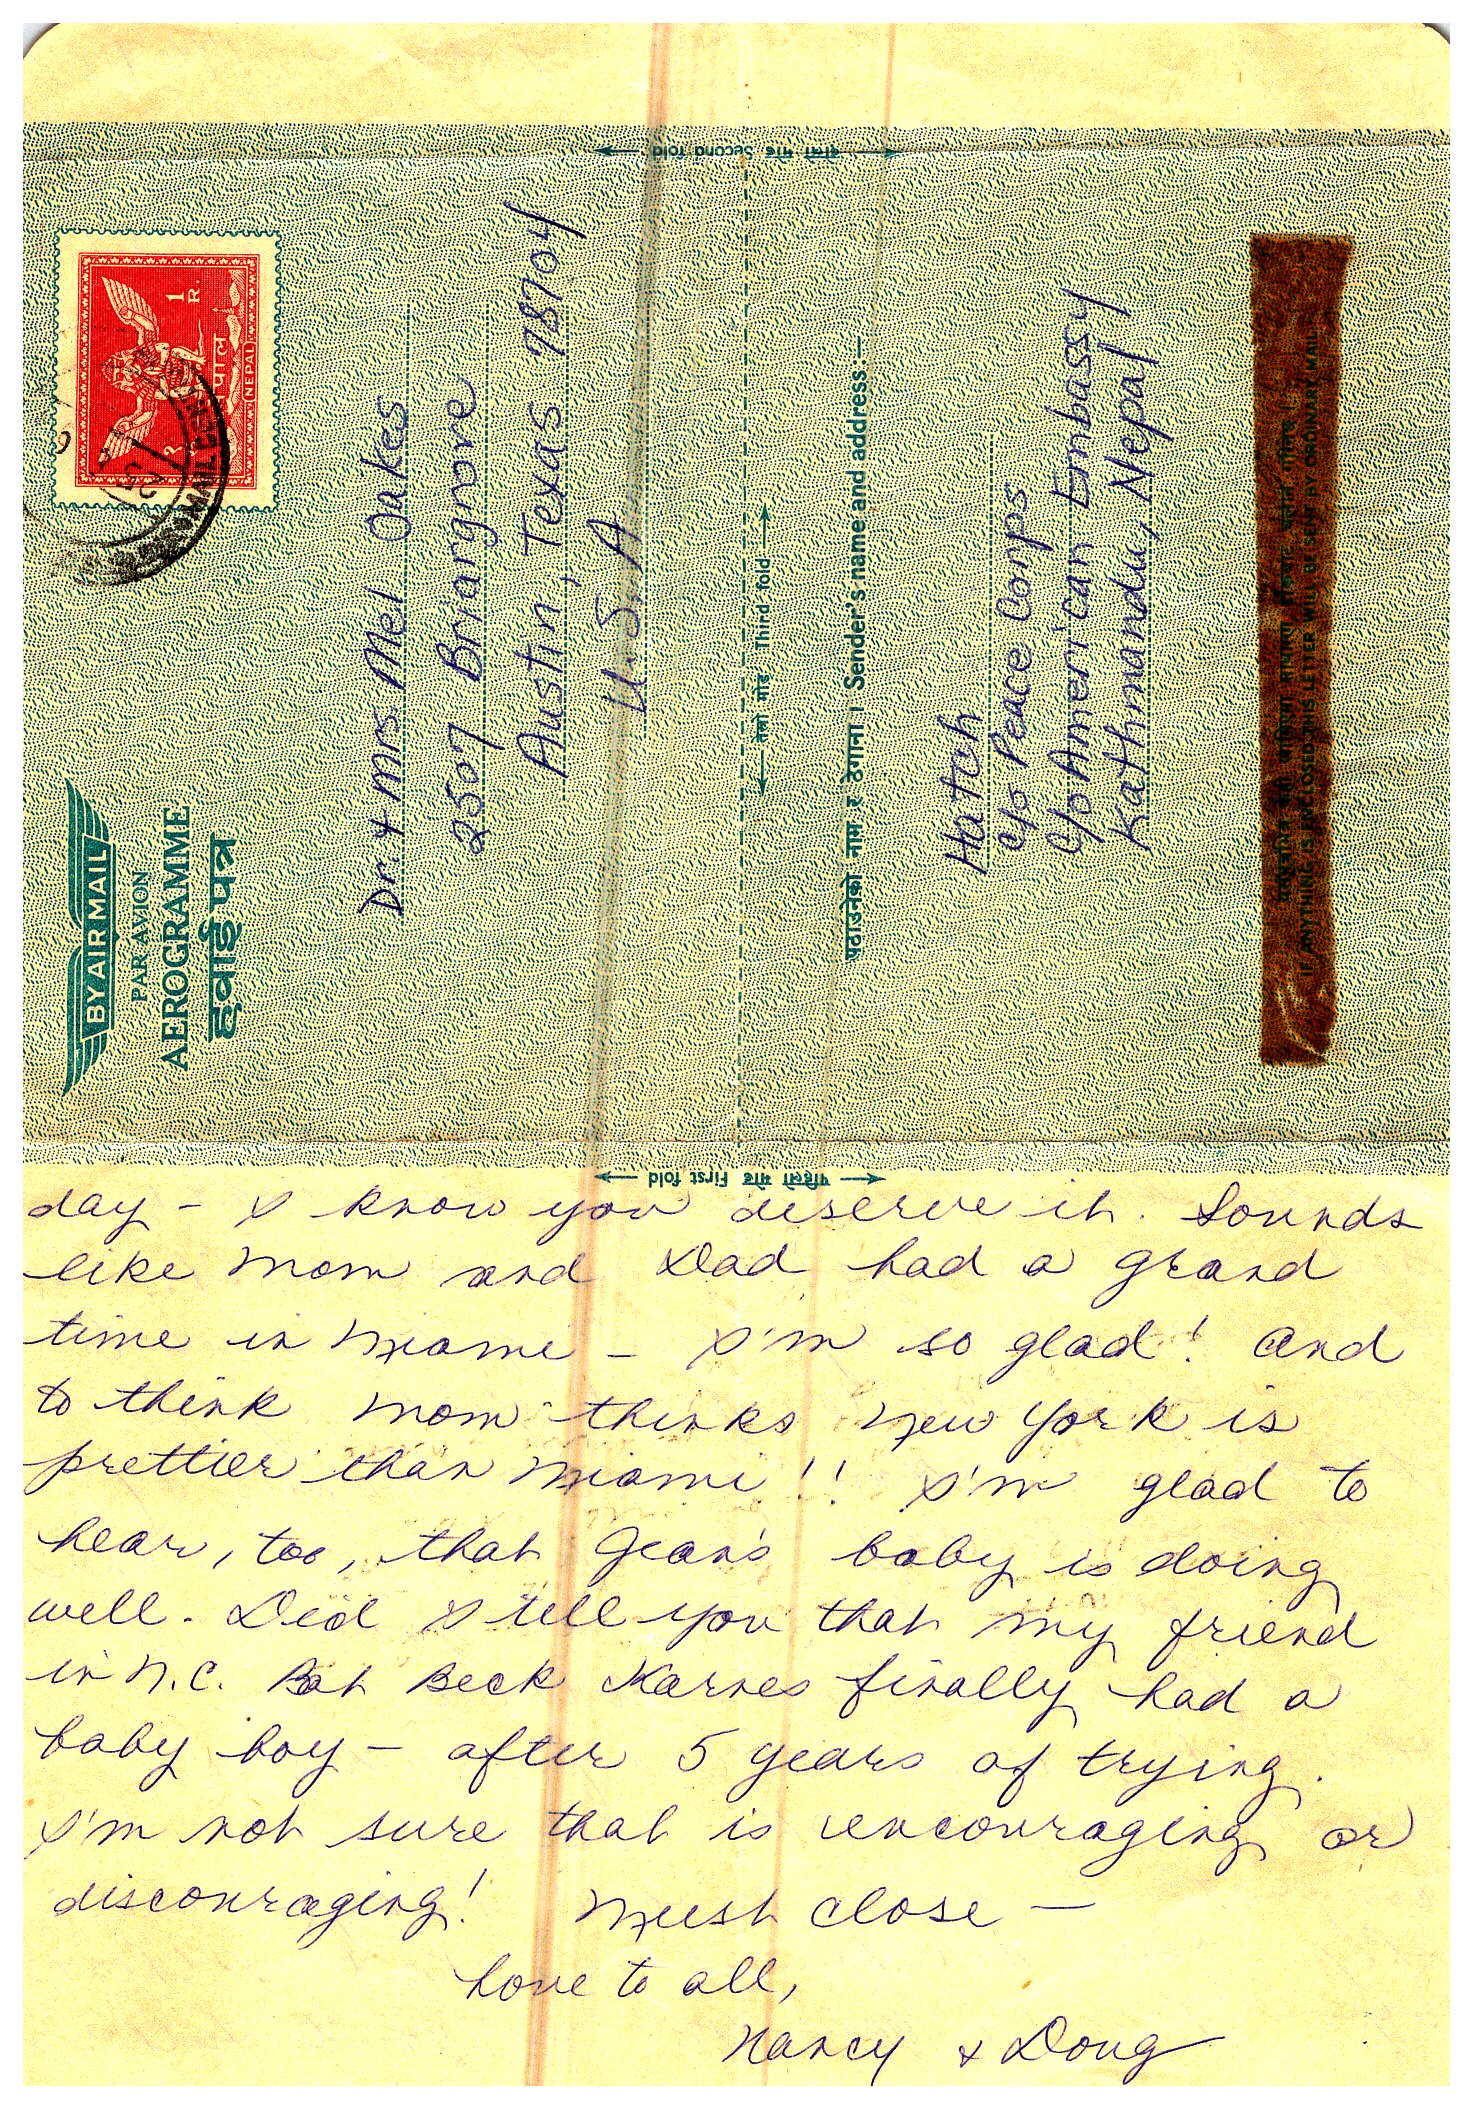 दोस्रो मोड Second fold
1
R.
नेपाल
NEPAL
BY AIR MAIL
PAR AVION
AEROGRAMME
हवाई पत्र
Dr. + Mrs. Mel Oakes
2507 Briargrove
Austin, Texas 78704
U.S.A
तेस्रो मोड Third fold
पठाउनेको नाम र ठेगाना । Sender's name and address:—
Hatch
c/o Peace Corps
c/o American Embassy
Kathmandu, Nepal
IF ANYTHING IS ENCLOSED THIS LETTER WILL BE SENT BY ORDINARY MAIL
पहिलो मोड First fold
day – I know you deserve it. Sounds
like Mom and Dad had a grand
time in Miami – I'm so glad! And
to think Mom thinks New York is
prettier than Miami!! I'm glad to
hear, too, that Jean's baby is doing
well. Did I tell you that my friend
in N.C. Pat Beck Karnes finally had a
baby boy – after 5 years of trying.
I'm not sure that is encouraging or
discouraging! Must close –
Love to all,
Nancy & Doug